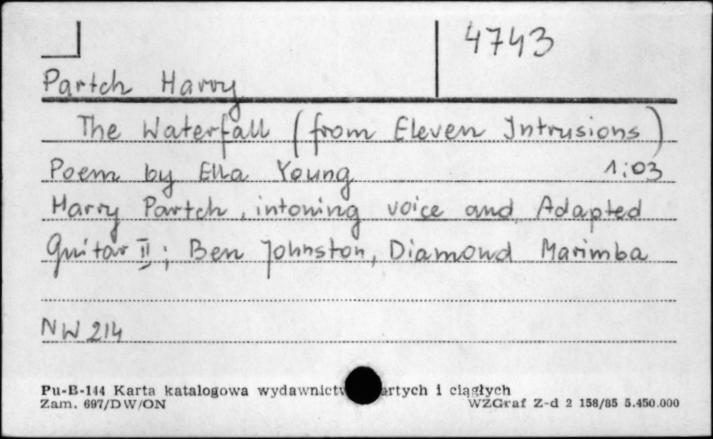 4743
Partch Harry
The Waterfall (from Eleven Intrusions)
Poem by Ella Young 1:03
Harry Partch, intoning voice and Adapted
Guitar II; Ben Johnston, Diamond Marimba
NW 214
Pu-B-144 Karta katalogowa wydawnictw artych i ciągłych
Zam. 697/DW/ON WZGraf Z-d 2 158/85 5.450.000